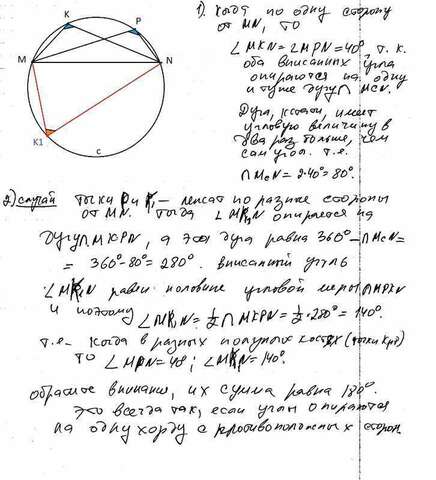 K
P
M
N
K1
c
1). Когда по одну сторону
от MN, то
∠MKN = ∠MPN = 40° т. к.
оба вписанных угла
опираются на одну
и ту же дугу ∩ McN.
Дуга, кстати, имеет
угловую величину в
два раза больше, чем
сам угол. т.е.
∩ McN = 2·40° = 80°.
2) случай точки P и K₁ – лежат по разные стороны
от MN. тогда ∠MK₁N опирается на
дугу ∩ MKPN, а эта дуга равна 360° – ∩ McN =
= 360° – 80° = 280°. вписанный угол
∠MK₁N равен половине угловой меры ∩ MPKN
и поэтому ∠MK₁N = ½ ∩ MKPN = ½·280° = 140°.
т.е. когда в разных полуплоскостях (точки K и P)
то ∠MPN = 40°; ∠MK₁N = 140°.
обратите внимание, их сумма равна 180°.
это всегда так, если углы опираются
на одну хорду с противоположных сторон.